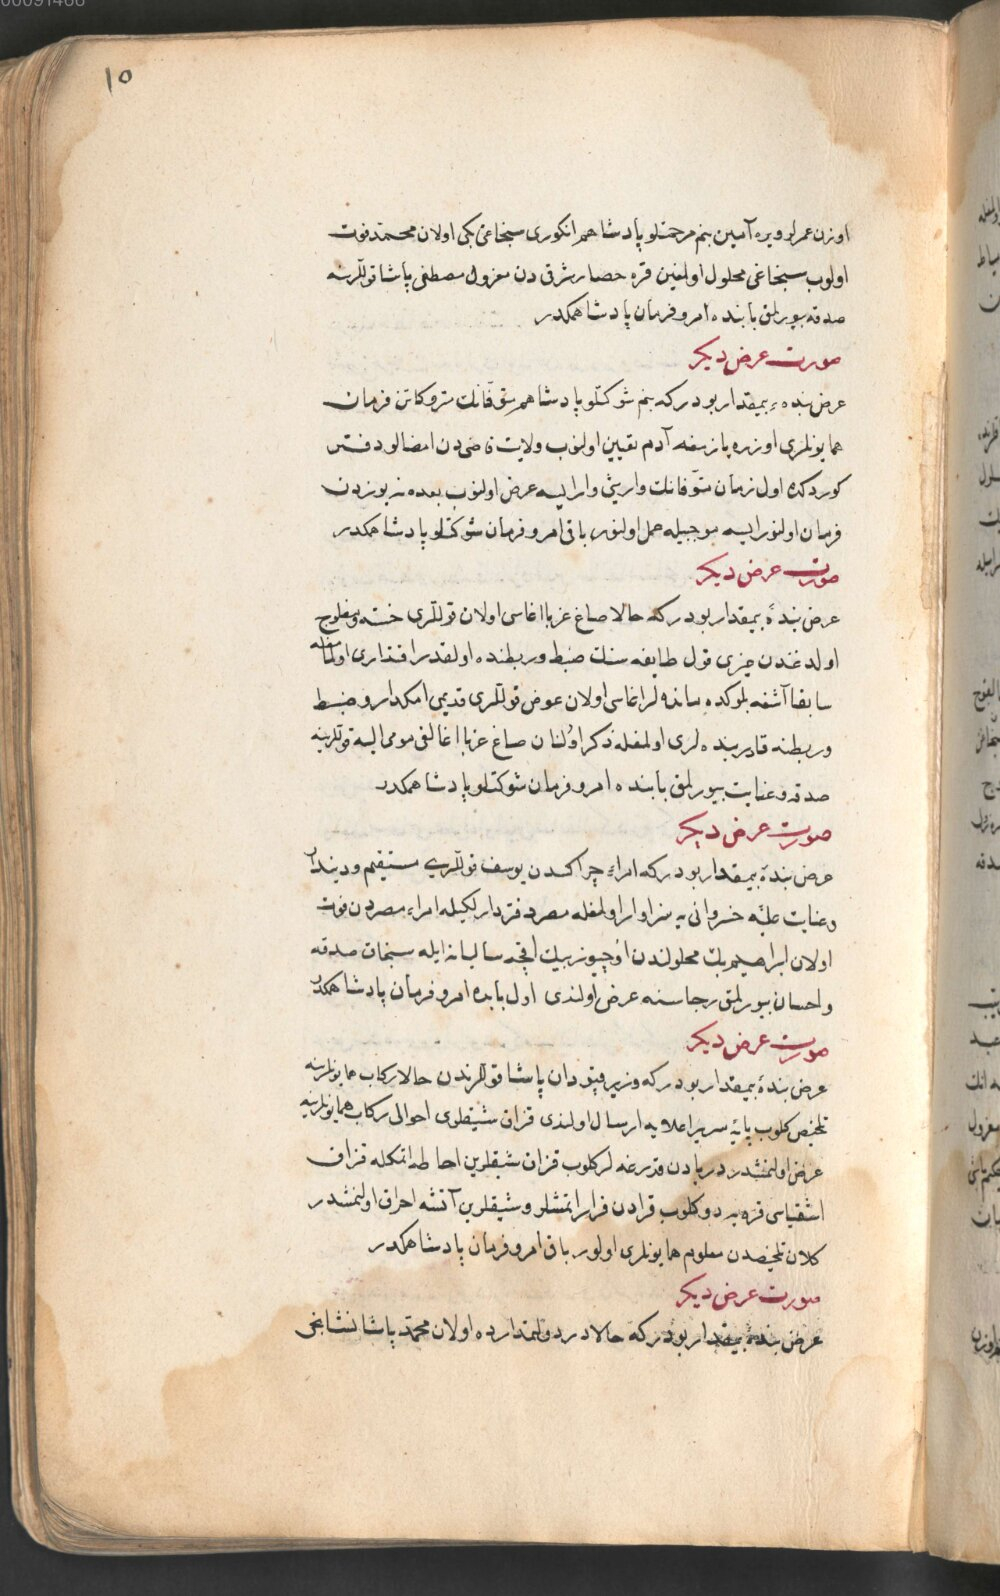 00091466
١٥
اوزن عمرلر ويره آمين بنم مرحمتلو پادشاهم انكوری سنجاغی بكی اولان محمد فوت
اولوب سنجاغی محلول اولمغين قره حصار شرقی دن معزول مصطفی پاشا قوللرينه
صدقه بيورلمق بابنده امر و فرمان پادشاهمكدر
صورت عرض ديكر
عرض بنده ٔ بيمقدار بودركه بنم شوكتلو پادشاهم متوفانك متروكاتن فرمان
همايونلری اوزره يازمغه آدم تعيين اولنوب ولايت قاضيدن امضالو دفتر
كوردكده اول زمان متوفانك وارثی وار ايسه عرض اولنوب بعده نه يوزدن
فرمان اولنور ايسه موجبيله عمل اولنور باقی امر و فرمان شوكتلو پادشاهمكدر
صورت عرض ديكر
عرض بندهٔ بيمقدار بودركه حالا صاغ عزبا اغاسی اولان قوللری خسته و مفلوج
اولدغندن جزی قول طايفه سنك ضبط و ربطنده اولقدر اقتداری اولمامغله
سابقا آشفته بلوكده اغاسی اولان عوض قوللری قديمی امكدار و ضبط
و ربطنه قادر بنده لری اولمغله ذكر اولنان صاغ عزبا اغالغی مومی اليه قوللرينه
صدقه و عنايت بيورلمق بابنده امر و فرمان شوكتلو پادشاهمكدر
صورت عرض ديكر
عرض بندهٔ بيمقدار بودركه امراء چراكسدن يوسف قوللری مستقيم و ديندار
و عنايت عليه خسروانی يه سزاوار اولمغله مصر دفتردارلكيله امراء مصردن فوت
اولان ابراهيم بك محلولندن اوچيوز بيك اقچه ساليانه ايله سنجاق صدقه
و احسان بيورلمق رجاسنه عرض اولندی اول بابده امر و فرمان پادشاهمكدر
صورت عرض ديكر
عرض بندهٔ بيمقدار بودركه وزير قپودان پاشا قوللرندن حالا ركاب همايونلرينه
تلخيص كلوب پايهٔ سرير اعلايه ارسال اولندی قزاق شيقلری احوالی ركاب همايونلرينه
عرض اولنمشدر دريادن قدرغه لر كلوب قزاق شيقلرين احاطه اتمكله قزاق
اشقياسی قره يه دوكلوب قرادن فرار اتمشلر و شيقلرين آتشه احراق اولنمشدر
كلان تلخيصدن معلوم همايونلری اولور باقی امر و فرمان پادشاهمكدر
صورت عرض ديكر
عرض بندهٔ بيمقدار بودركه حالا در دولتمدارده اولان محمد پاشا نشانجی